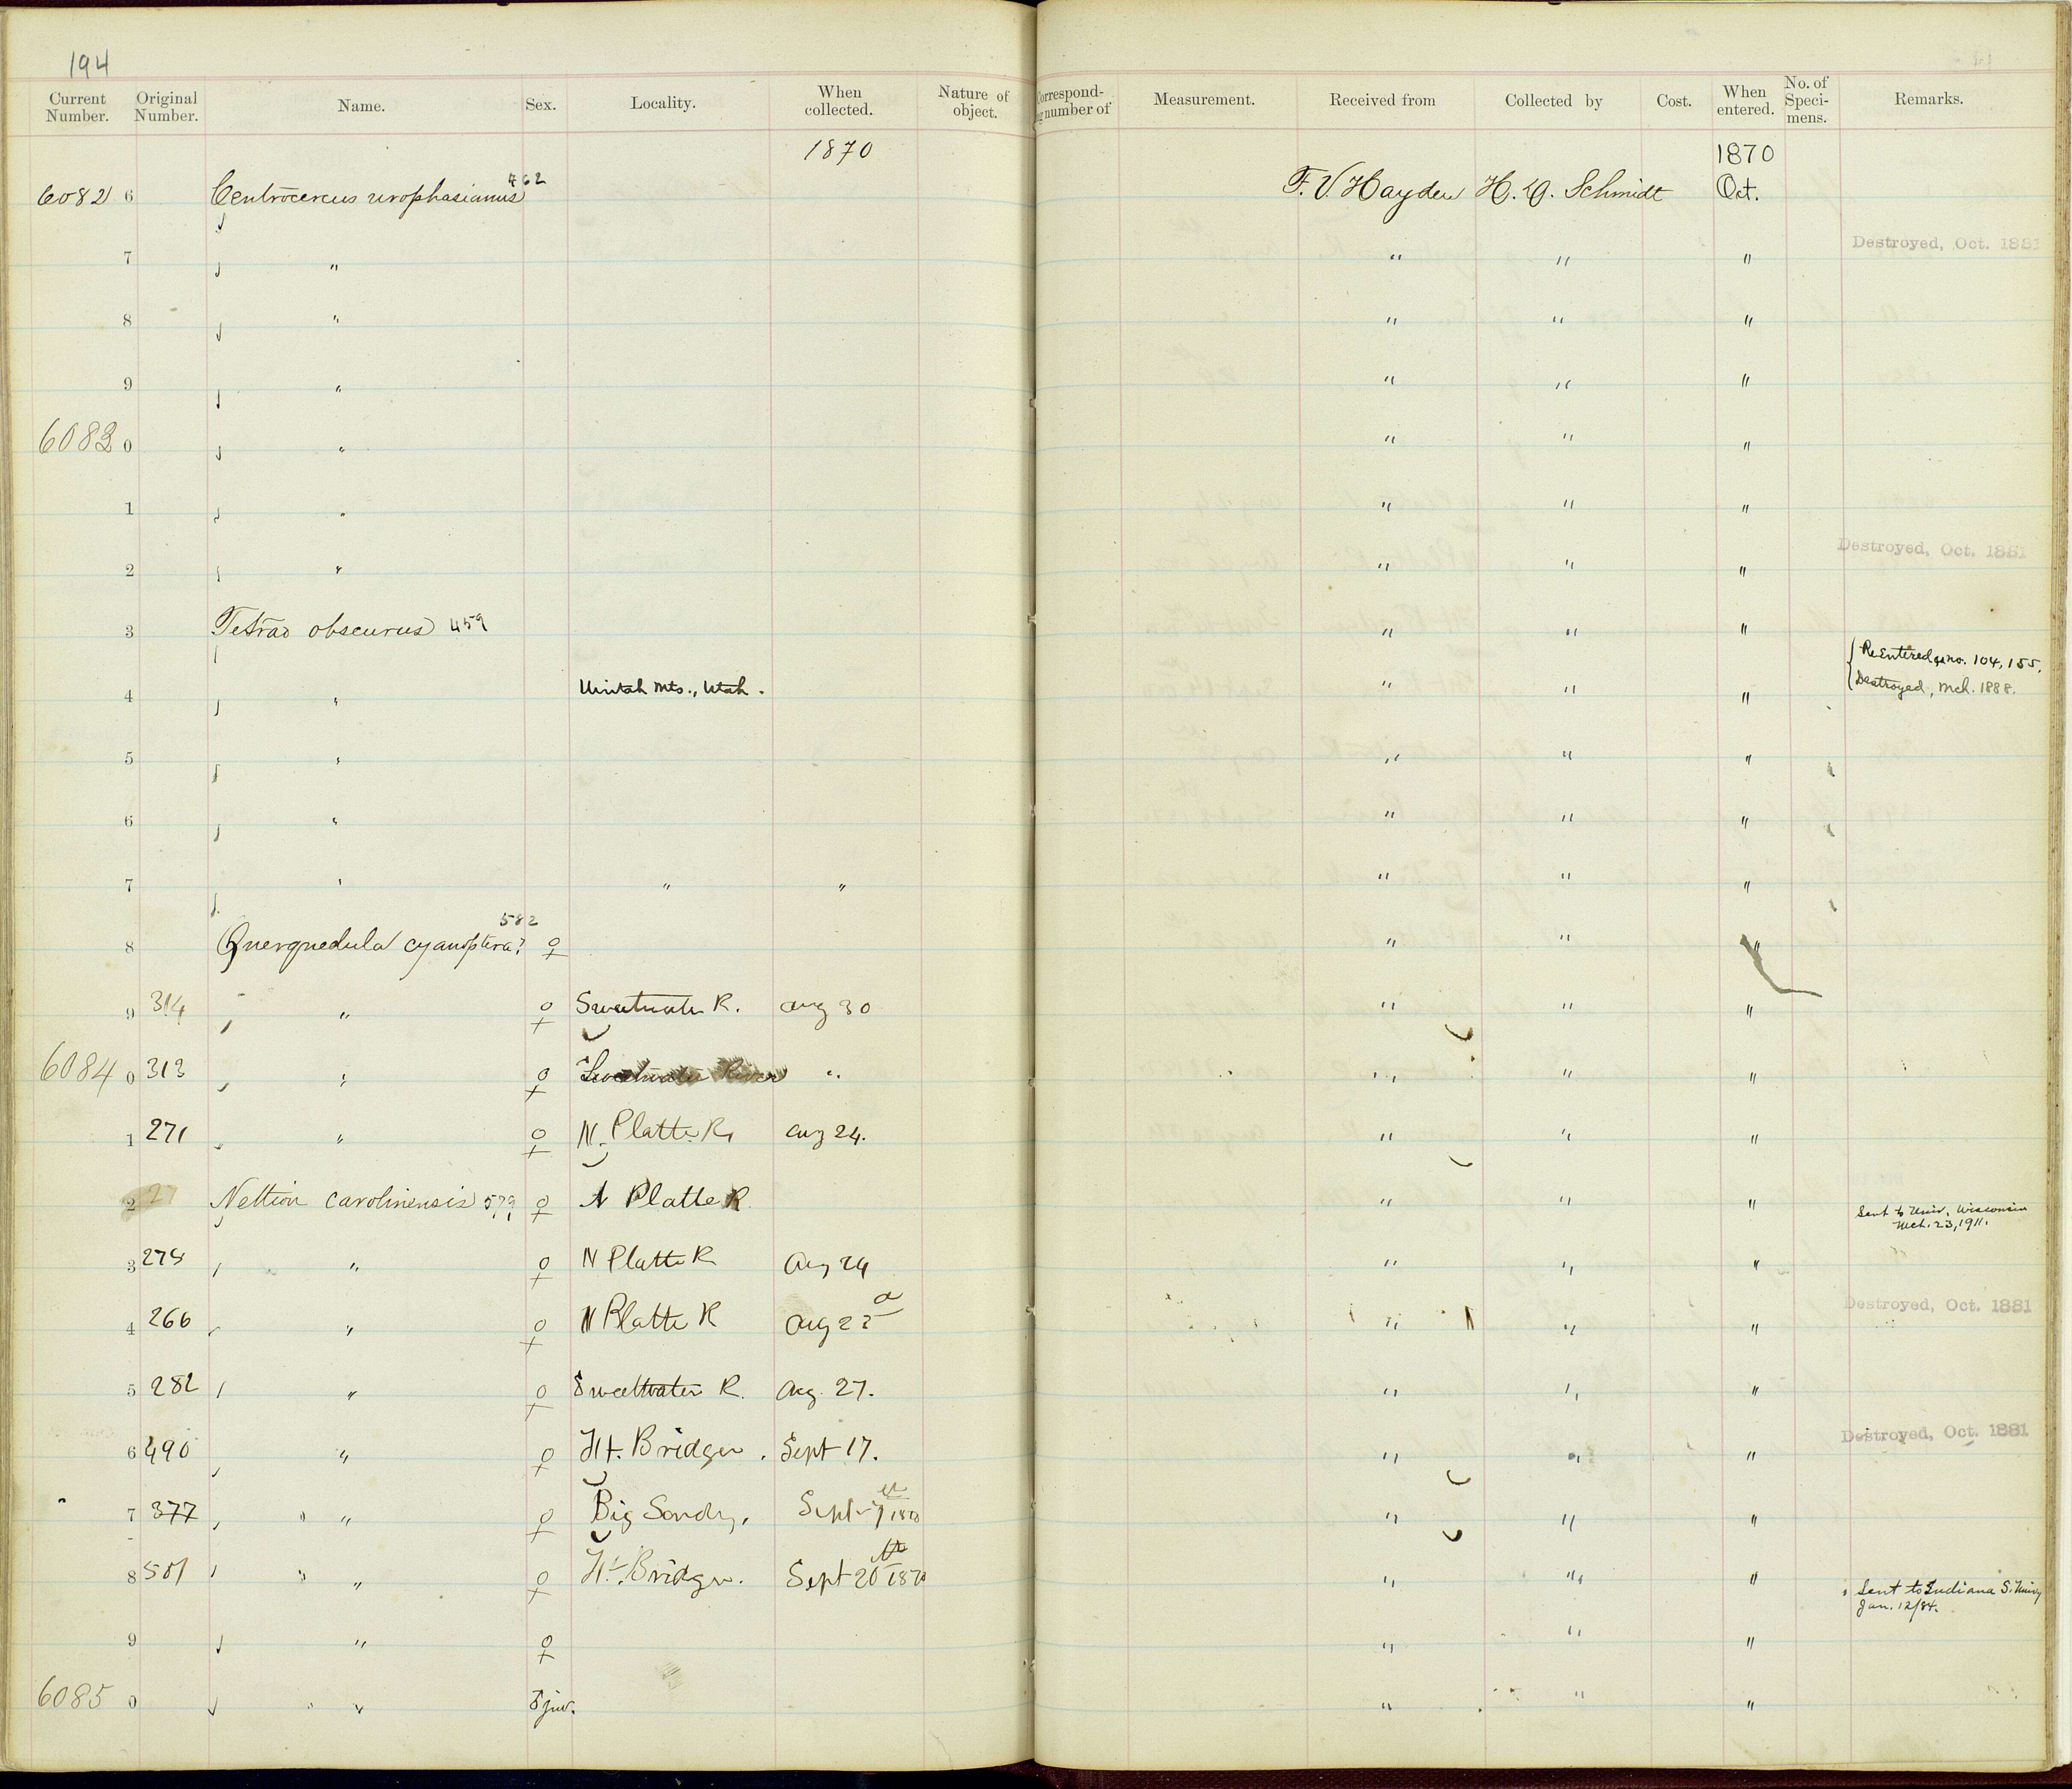 194
Current Number. Original Number. Name. Sex. Locality. When collected. Nature of object. Correspond- number of Measurement. Received from Collected by Cost. When entered. No. of Speci- mens. Remarks.
1870 1870
6082 6 Centrocercus urophasianus 462 F. V. Hayden H. D. Schmidt Oct.
7 " " " " Destroyed, Oct. 1881
8 " " " "
9 " " " "
6083 0 " " " "
1 " " " "
2 " " " " Destroyed, Oct. 1881
3 Tetrao obscurus 459 " " "
4 " Uintah Mts., Utah. " " " Reentered as no. 104,155. Destroyed, Mch. 1888.
5 " " " "
6 " " " "
7 " " " " " "
8 Querquedula cyanoptera? 582 ♀ " " "
9 314 " ♀ Sweetwater R. Aug 30 " " "
6084 0 313 " ♀ Sweetwater River " " " "
1 271 " ♀ N. Platte R. Aug 24. " " "
2 27 Nettion carolinensis 579 ♀ N Platte R " " " Sent to Univ. Wisconsin Mch. 23, 1911.
3 275 " ♀ N Platte R Aug 24 " " "
4 266 " ♀ N Platte R Aug 22 " " " Destroyed, Oct. 1881
5 282 " ♀ Sweetwater R. Aug. 27. " " "
6 490 " ♀ Ft. Bridger. Sept 17. " " " Destroyed, Oct. 1881
7 377 " " ♀ Big Sandy. Sept 7th 1870 " " "
8 501 " " ♀ Ft. Bridger. Sept 20th 1870 " " " Sent to Indiana S. Univ Jan. 12/84.
9 " ♀ " " "
6085 0 " " juv. " " "